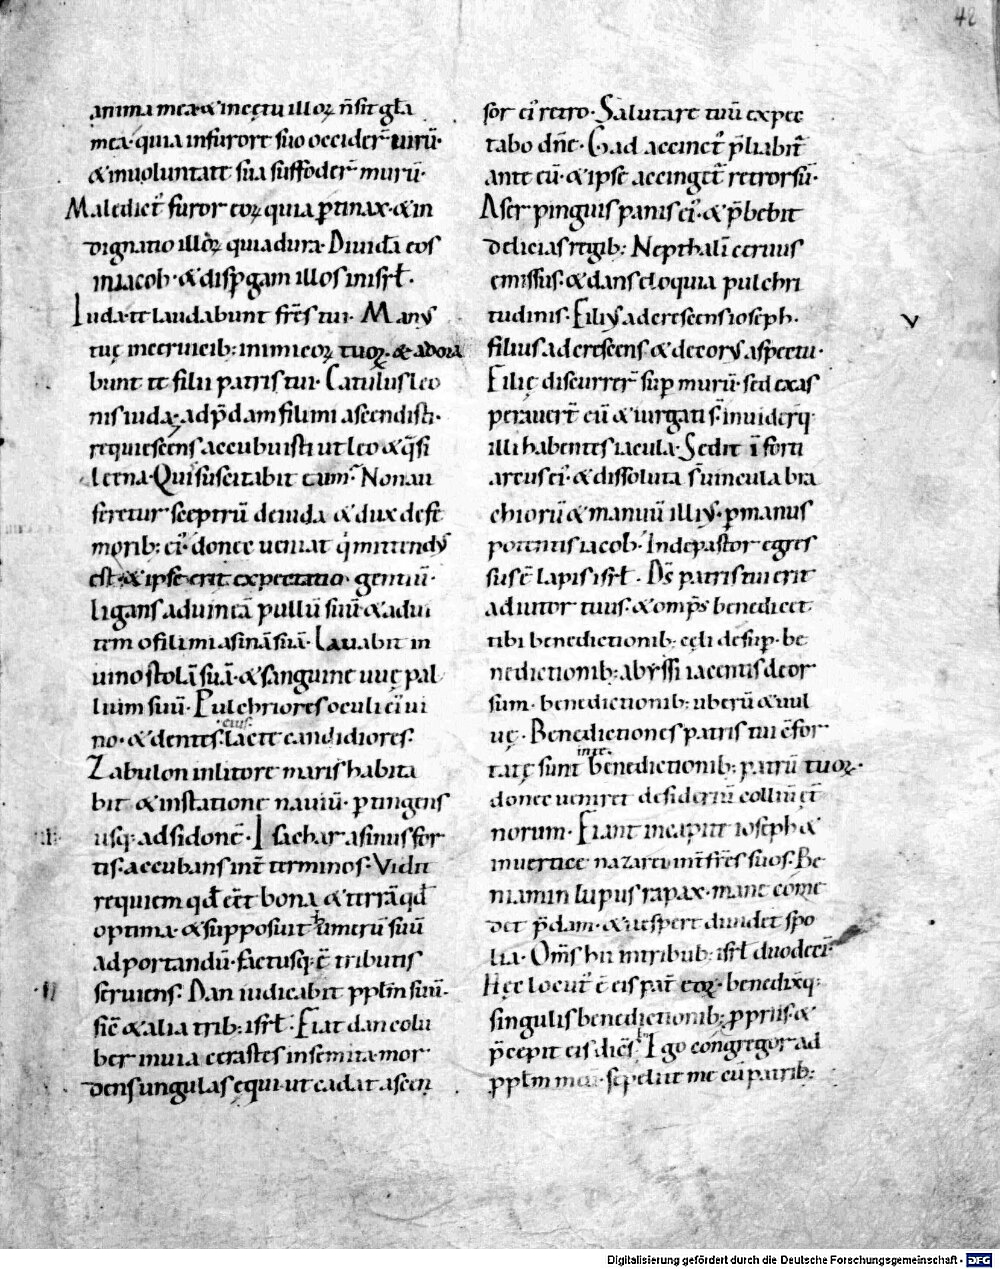 42
anima mea· & in cętu illoꝝ ñ sit gła
mea· quia in furore suo occider̄ uirū·
& in uoluntate sua suffoder̄ murū·
Maledict᷒ furor eoꝝ quia ꝑtinax· & in
dignatio illoꝝ quia dura· Diuidā eos
in iacob· & dispꝑgam illos in isrł·
Iuda· te laudabunt fr̄es tui· Manꝰ
tuę in ceruicib; inimicoꝝ tuoꝝ· & adora
bunt te filii patris tui· Catulus leo
nis iuda· ad p̄dam fili mi ascendisti·
requiescens accubuisti ut leo & q̄si
leena· Quis suscitabit eum· Non au
feretur sceptrū de iuda & dux de fe
morib; ei᷒· donec ueniat q̇ mittendꝰ
est· & ipse erit expectatio gentiū·
ligans ad uineā pullū suū· & ad ui
tem o fili mi asinā suā· Lauabit in
uino stolā suā· & sanguine uuę pal
lium suū· Pulchriores oculi ei᷒ ui
eius·
no· & dentes lacte candidiores·
Zabulon in litore maris habita
bit & in statione nauiū· ꝑtingens
usq; ad sidonē· Isachar asinus for
tis· accubans int̄ terminos· Vidit
requiem qđ eēt bona & terrā qđ
optima· & supposuit umerū suū
ad portandū· factusq; ē tributis
seruiens· Dan iudicabit ppłm suū·
sic̄ & alia trib; isrł· Fiat dan colu
ber in uia cerastes in semita· mor
dens ungulas equi· ut cadat ascen
sor ei᷒ retro· Salutare tuū expec
tabo dñe· Gad accinct᷒ p̄liabit᷑
ante eū· & ipse accinget᷑ retrorsū·
Aser pinguis panis ei᷒· & p̄bebit
delicias regib; Nepthalī ceruus
emissus· & dans eloquia pulchri
tudinis· Filiꝰ adcrescens ioseph·
filius adcrescens & decorꝰ aspectu·
Filię discurrer̄ sup murū· sed exas
perauert̄ eū & iurgati s̄· inuiderq;
illi habentes iacula· Sedit ī forti
arcus ei᷒· & dissoluta s̄ uincula bra
chiorū & manuū illiꝰ· ꝑ manus
potentis iacob· Inde pastor egres
sus ē lapis isrł· Ds̄ patris tui erit
adiutor tuus· & omp̄s benedicet
tibi benedictionib; cęli desup· be
nedictionib; abyssi iacentis deor
sum· benedictionib; uberū & uul
uę· Benedictiones patris tui cōfor
tatę sunt benedictionib; patrū tuoꝝ·
donec ueniret desideriū colliū ęt᷑
norum· Fiant in capite ioseph &
in uertice nazarei int̄ fr̄es suos· Be
niamin lupus rapax· mane come
det p̄dam· & uespere diuidet spo
lia· Oms̄ hii in tribub; isrł duodeci·
Hęc locut᷒ ē eis pat᷑ eoꝝ· benedixq;
singulis benedictionib; ꝓpriis· &
p̄cepit eis dicēs· Ego congregor ad
ppłm meū· sepelite me cū patrib;
Digitalisierung gefördert durch die Deutsche Forschungsgemeinschaft - DFG